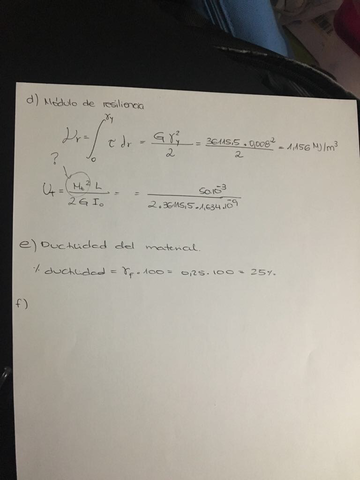 d) Módulo de resiliencia
μr = ∫₀^γy τ dγ = Gγy²/2 = 36115,5 · 0,008²/2 = 1,156 MJ/m³
?
Ut = Mt² L/2 G Io = = 50·10⁻³/2 · 36115,5 · 1,534·10⁻⁹
e) Ductilidad del material
% ductilidad = γf · 100 = 0,25 · 100 = 25%
f)